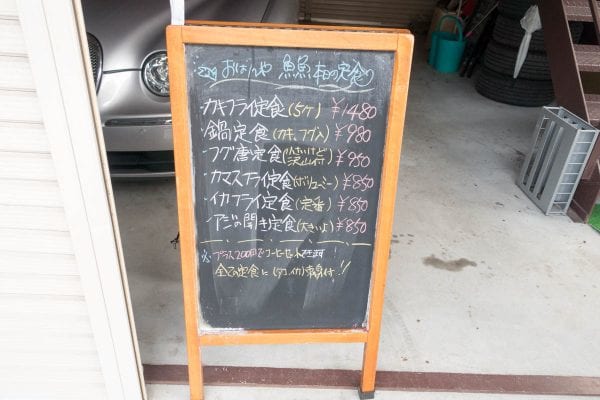 おばんや 魚魚 本日の定食
・カキフライ定食(5ケ) ¥1480
・鍋定食(カキ、フグ入) ¥980
・フグ唐定食(小さいけど沢山付) ¥950
・カマスフライ定食(ボリューミー) ¥850
・イカフライ定食(定番) ¥850
・アジの開き定食(大きいよ) ¥850
※プラス200円でコーヒーセットできます
全ての定食に(タコ、イカ)刺身付!!